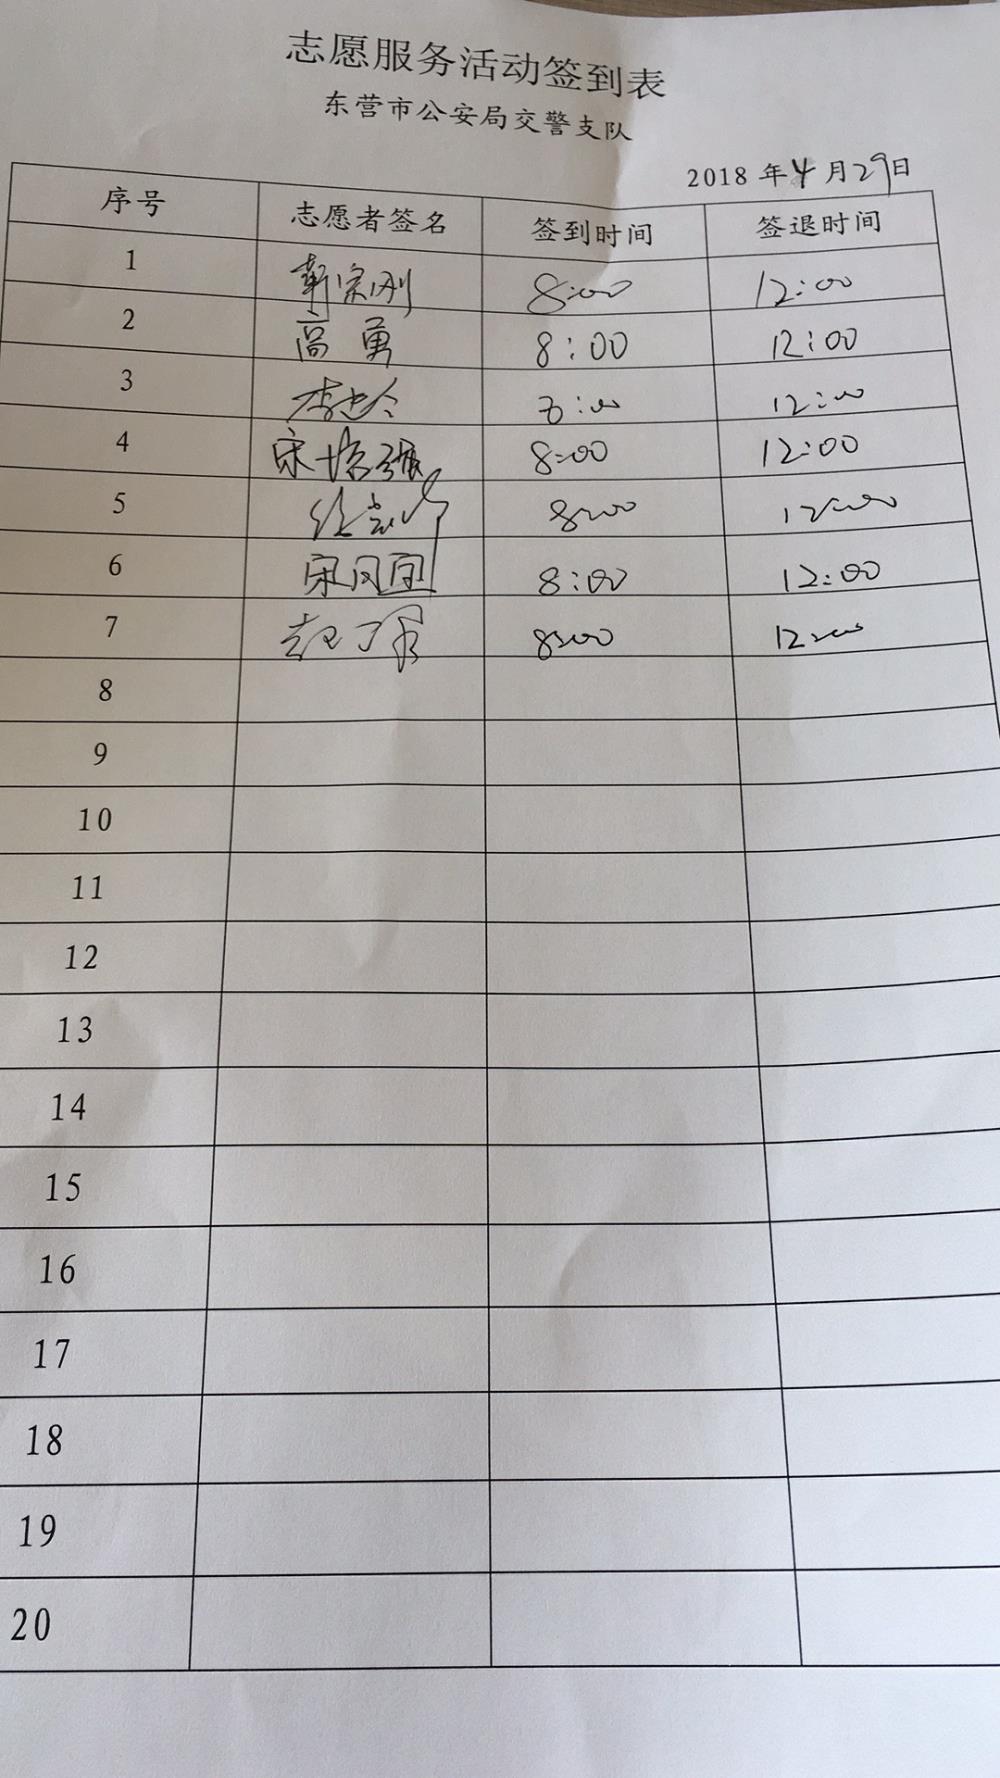 志愿服务活动签到表
东营市公安局交警支队
2018 年 4 月 29 日
序号 志愿者签名 签到时间 签退时间
1 靳宗刚 8:00 12:00
2 高勇 8:00 12:00
3 李 8:00 12:00
4 宋培强 8:00 12:00
5 8:00 12:00
6 宋风国 8:00 12:00
7 赵丁 8:00 12:00
8
9
10
11
12
13
14
15
16
17
18
19
20